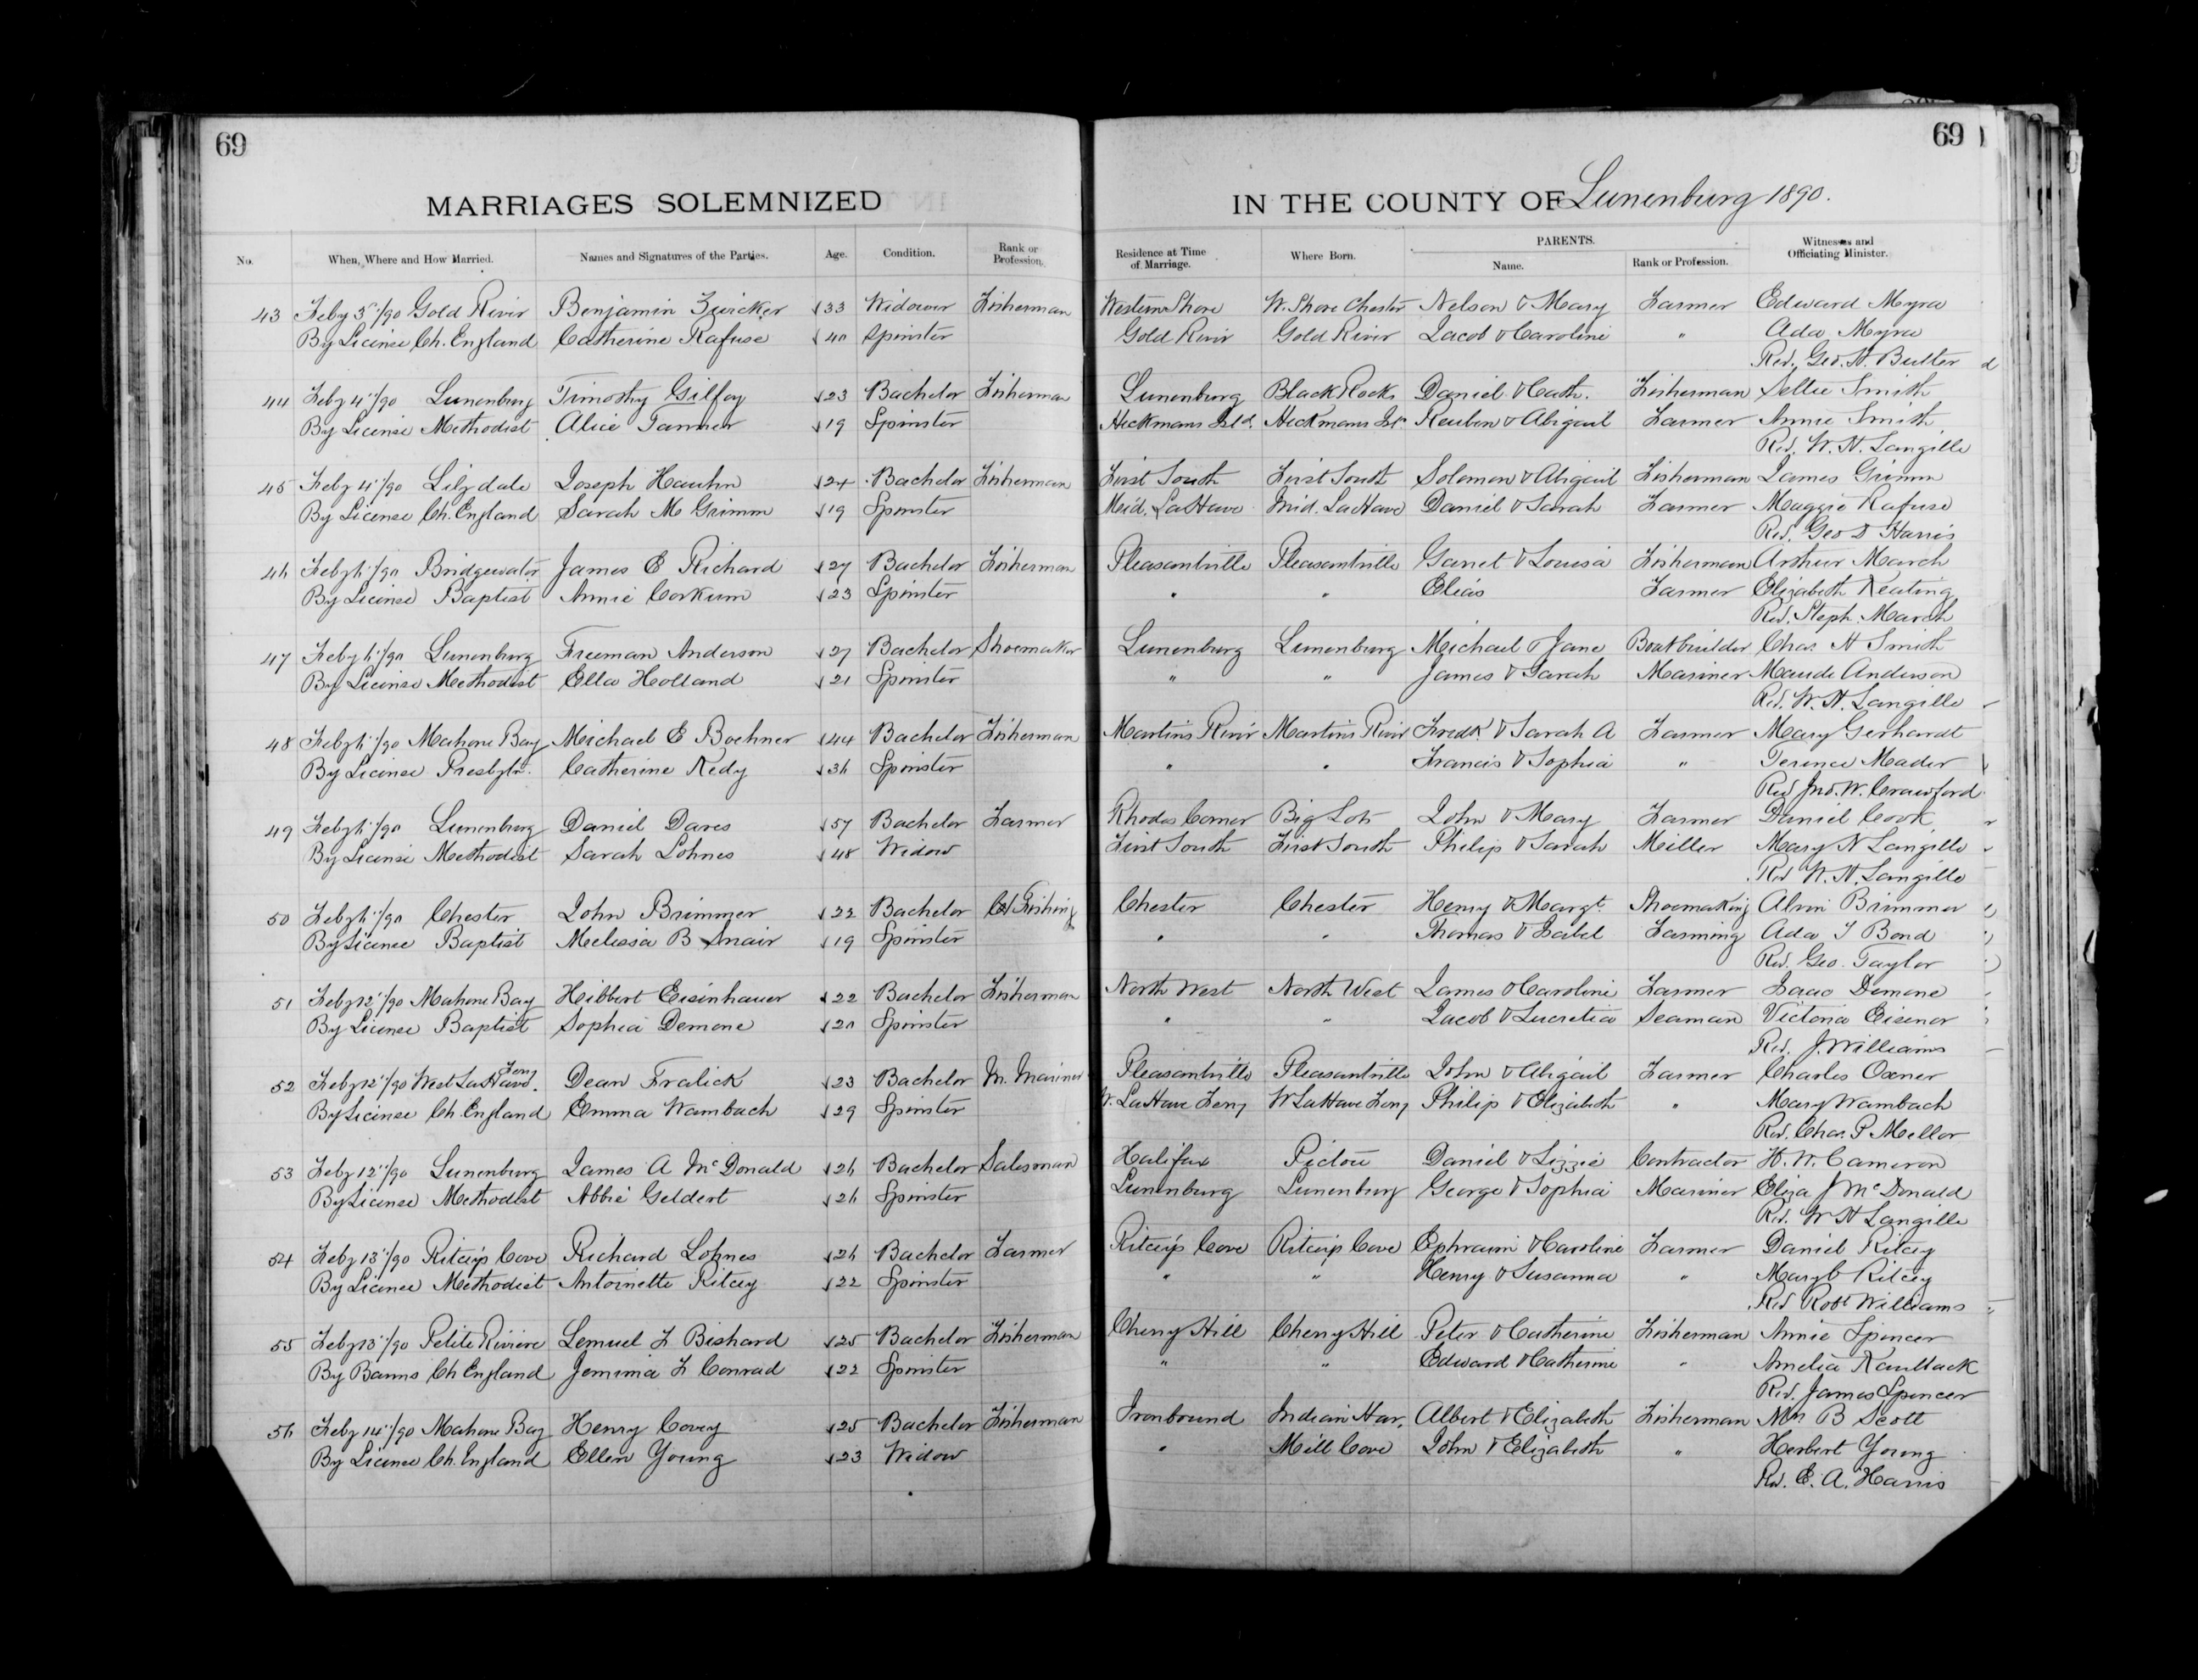 69
69
MARRIAGES SOLEMNIZED IN THE COUNTY OF Lunenburg 1890.
No. When, Where and How Married. Names and Signatures of the Parties. Age. Condition. Rank or Profession. Residence at Time of Marriage. Where Born. PARENTS. Name. Rank or Profession. Witnesses and Officiating Minister.
43 Feby 3"/90 Gold River Benjamin Zwicker 33 Widower Fisherman Western Shore W. Shore Chester Nelson & Mary Farmer Edward Myra
By License Ch. England Catherine Rafuse 40 Spinster Gold River Gold River Jacob & Caroline " Ada Myra
Rev. Geo. H. Butler
44 Feby 4"/90 Lunenburg Timothy Gilfoy 23 Bachelor Fisherman Lunenburg Black Rocks Daniel & Cath. Fisherman Smith
By License Methodist Alice Tanner 19 Spinster Heckmans Isld. Heckmans Isl. Reuben & Abigail Farmer Annie Smith
Rev. W. H. Langille
45 Feby 4"/90 Lilydale Joseph Hauhn 24 Bachelor Fisherman First South First South Solomon & Abigail Fisherman James Grimm
By License Ch. England Sarah M Grimm 19 Spinster Mid. LaHave Mid. LaHave Daniel & Sarah Farmer Maggie Rafuse
Rev. Geo D Harris
46 Feby 6"/90 Bridgewater James E Richard 27 Bachelor Fisherman Pleasantville Pleasantville Garret & Louisa Fisherman Arthur March
By License Baptist Annie Corkum 23 Spinster " " Elias Farmer Elizabeth Keating
Rev. Steph. March
47 Feby 6"/90 Lunenburg Freeman Anderson 27 Bachelor Shoemaker Lunenburg Lunenburg Michael & Jane Boatbuilder Chas H Smith
By License Methodist Ella Holland 21 Spinster " " James & Sarah Mariner Maude Anderson
Rev. W. H. Langille
48 Feby 6"/90 Mahone Bay Michael E Boehner 44 Bachelor Fisherman Martins River Martins River Fredk. & Sarah A Farmer Mary Gerhardt
By License Presbytn. Catherine Kedy 36 Spinster " " Francis & Sophia " Terence Mader
Rev Jno. W. Crawford
49 Feby 6"/90 Lunenburg Daniel Dares 57 Bachelor Farmer Rhodes Corner Big Lots John & Mary Farmer Daniel Cook
By License Methodist Sarah Lohnes 48 Widow First South First South Philip & Sarah Miller Mary N Langille
Rev W. H. Langille
50 Feby 6"/90 Chester John Brimmer 22 Bachelor Fishing Chester Chester Henry & Margt. Shoemaking Alvin Brimmer
By License Baptist Melissa B Snair 19 Spinster " " Thomas & Isabel Farming Ada T Bond
Rev. Geo. Taylor
51 Feby 12"/90 Mahone Bay Hibbert Eisenhauer 22 Bachelor Fisherman North West North West James & Caroline Farmer Isaac Demone
By License Baptist Sophia Demone 20 Spinster " " Jacob & Lucretia Seaman Victoria Eisenor
Rev. J. Williams
52 Feby 12"/90 West LaHave Ferry Dean Fralick 23 Bachelor M. Mariner Pleasantville Pleasantville John & Abigail Farmer Charles Oxner
By License Ch. England Emma Wambach 29 Spinster W. LaHave Ferry W LaHave Ferry Philip & Elizabeth " Mary Wambach
Rev. Chas. P Mellor
53 Feby 12"/90 Lunenburg James A McDonald 26 Bachelor Salesman Halifax Pictou Daniel & Lizzie Contractor H. W. Cameron
By License Methodist Abbie Geldert 26 Spinster Lunenburg Lunenburg George & Sophia Mariner Eliza J McDonald
Rev. W H Langille
54 Feby 13"/90 Ritcey's Cove Richard Lohnes 26 Bachelor Farmer Ritcey's Cove Ritcey's Cove Ephraim & Caroline Farmer Daniel Ritcey
By License Methodist Antoinette Ritcey 22 Spinster " " Henry & Susanna " Mary C Ritcey
Rev Robt Williams
55 Feby 13"/90 Petite Riviere Lemuel F Bishard 25 Bachelor Fisherman Cherry Hill Cherry Hill Peter & Catherine Fisherman Annie Spencer
By Banns Ch England Jemima F Conrad 22 Spinster " " Edward & Catherine " Amelia Kaulback
Rev. James Spencer
56 Feby 14"/90 Mahone Bay Henry Covey 25 Bachelor Fisherman Ironbound Indian Har. Albert & Elizabeth Fisherman B Scott
By License Ch. England Ellen Young 23 Widow " Mill Cove John & Elizabeth " Herbert Young
Rev. E. A. Harris